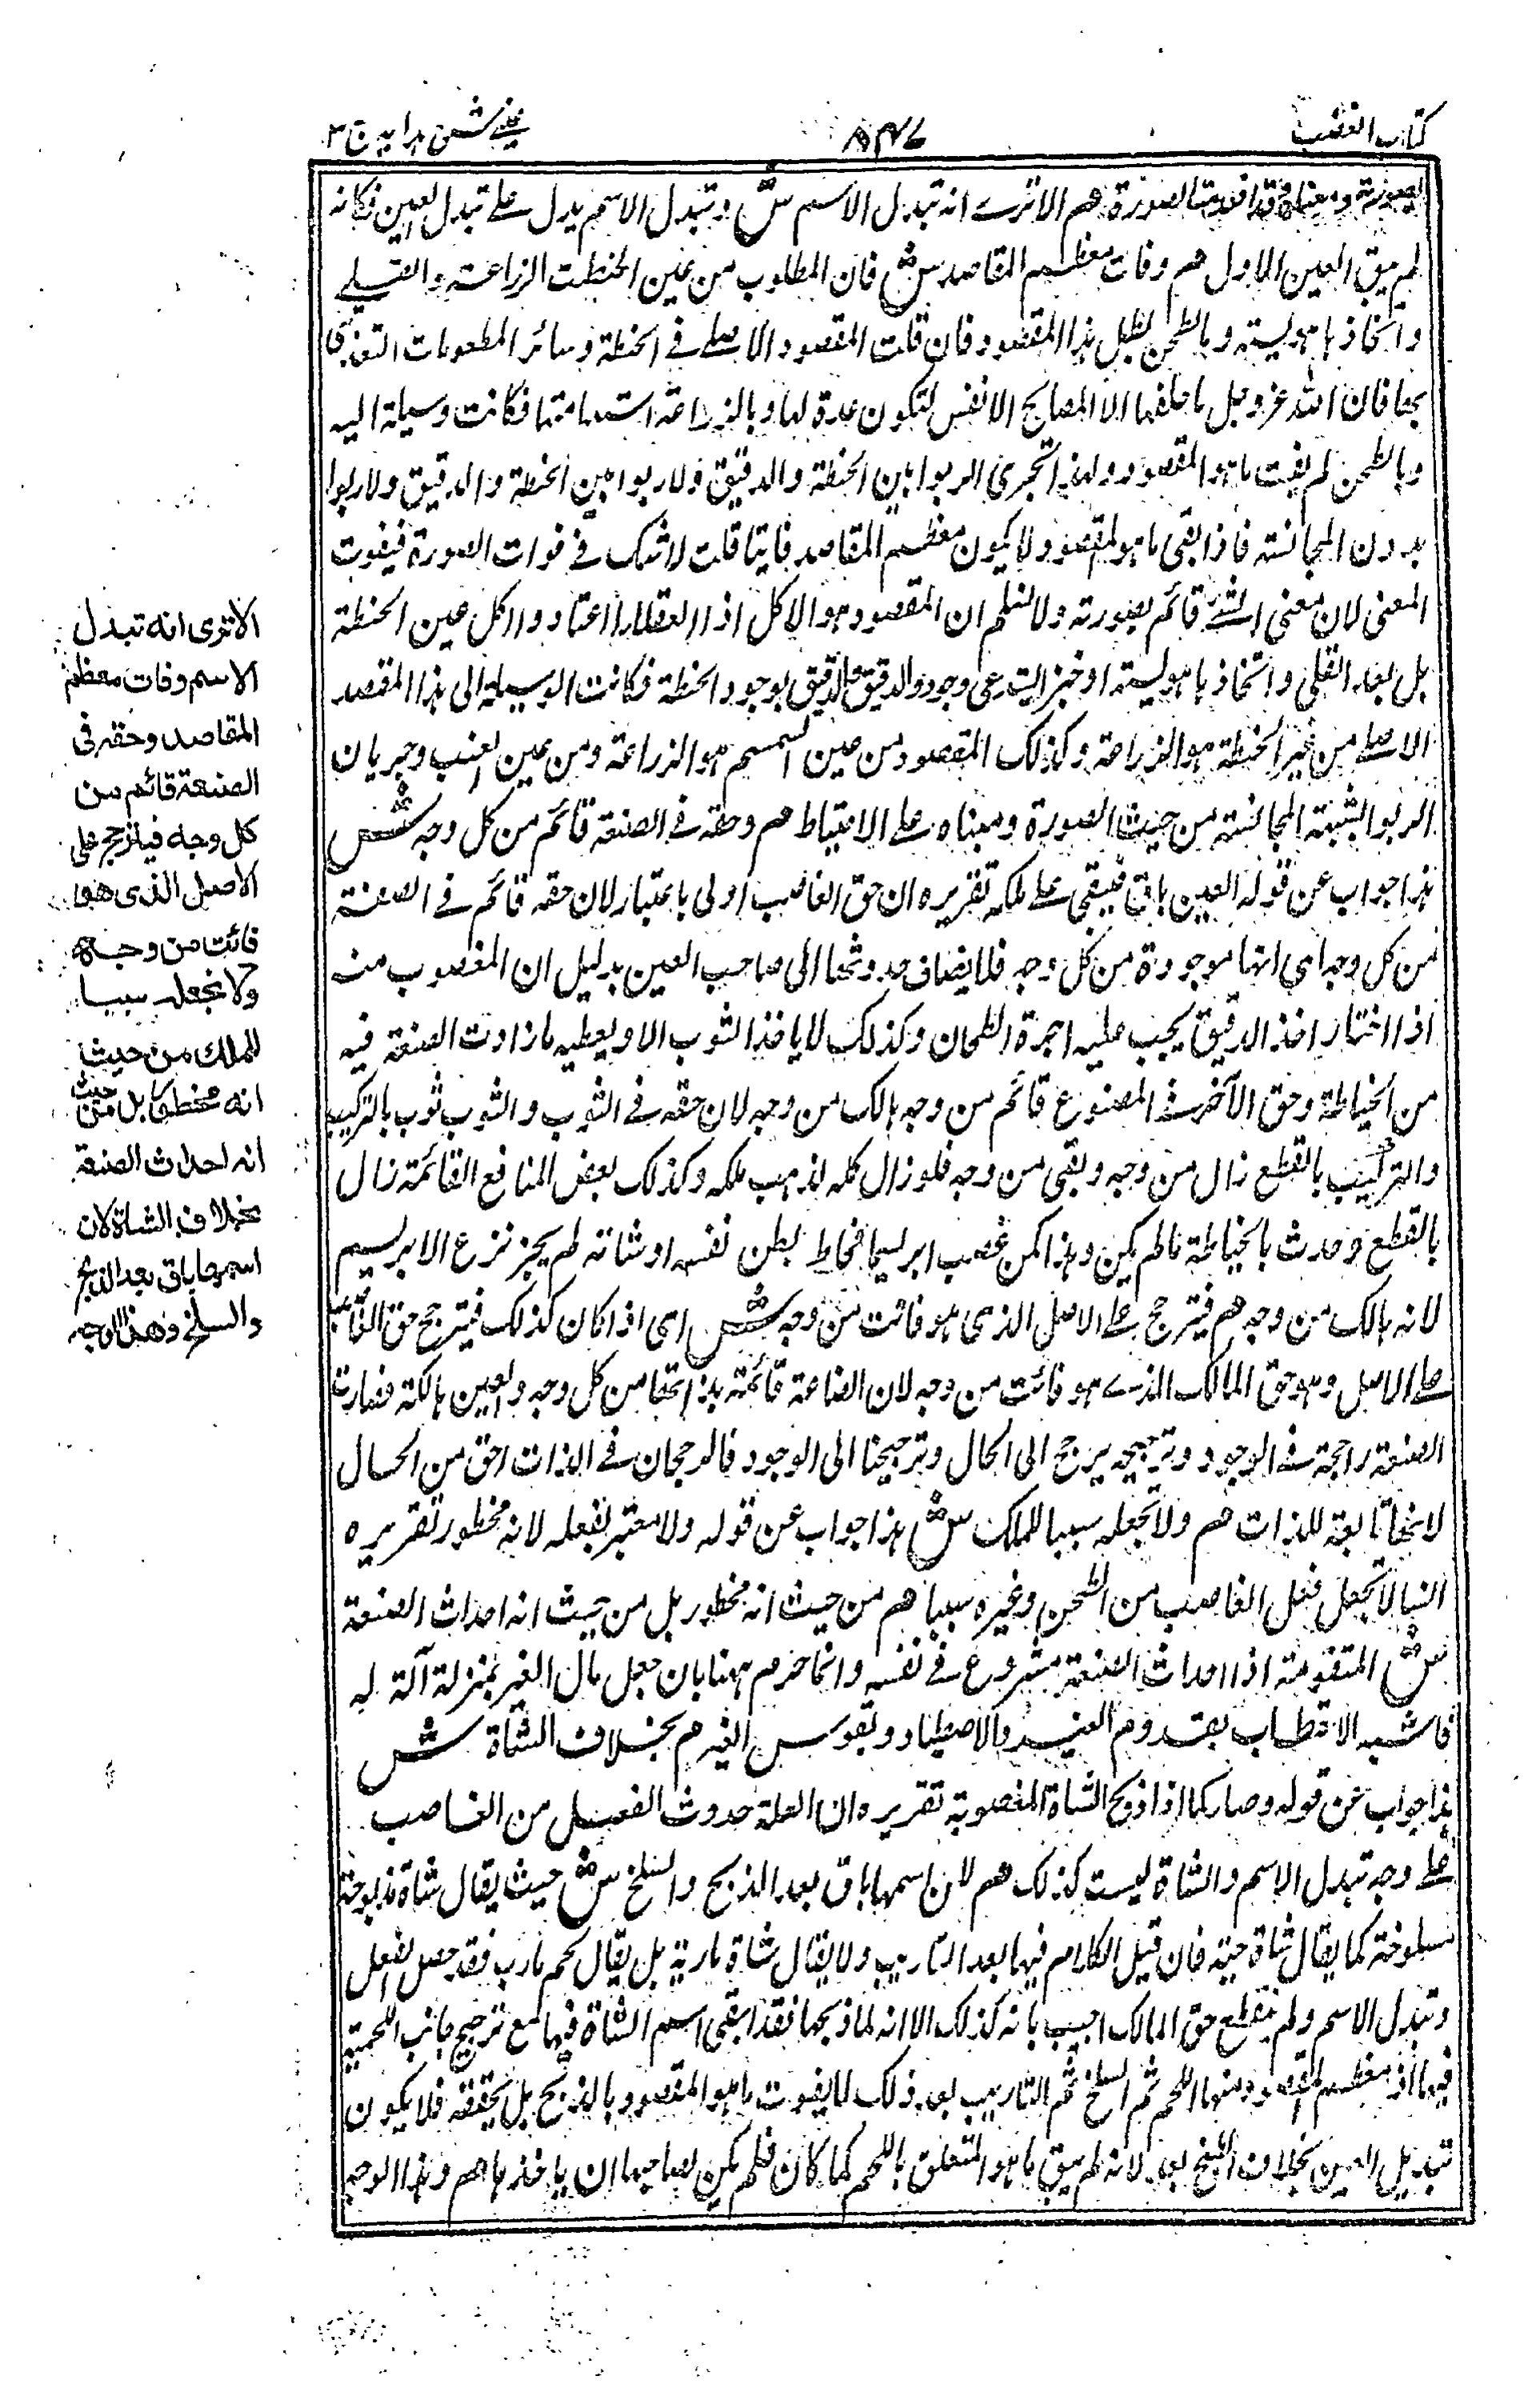 كتاب الغصب
٨٤٧
عينى شرح هدايه ج ٣
بصورته ومعناه وقد فاتت الصورة هم الا ترى انه تبدل الاسم ش وتبدل الاسم يدل على تبدل العين فكانه
لم يبق العين الاول هم وفات معظم المقاصد ش فان المطلوب من عين الحنطة الزراعة والقلى
واتخاذها هريسته وبالطحن بطل هذا المقصود فان قلت المقصود الاصلى فى الحنطة وسائر المطعومات التغذى
بها فان الله عز وجل ما خلقها الا لمصالح الانفس لتكون عدة لها وبالزراعة استدامتها فكانت وسيلة اليه
وبالطحن لم يفت ما هو المقصود ولهذا تجرى الربوا بين الحنطة والدقيق ولا ربوا بين الحنطة والدقيق ولا ربوا
بدون المجانسة فاذا بقى ما هو المقصود لا يكون معظم المقاصد فايتا قلت لا شك فى فوات الصورة فيفوت
المعنى لان معنى الشئ قائم بصورته ولا نسلم ان المقصود هو الاكل اذا العقلاء ما اعتادوا اكل عين الحنطة
بل بعد القلى واتخاذها هريسته او خبز ايستدعى وجود الدقيق والدقيق بوجود الحنطة فكانت الوسيلة الى هذا المقصد
الاصلى من غير الحنطة هو الزراعة وكذلك المقصود من عين السمسم هو الزراعة ومن عين العنب وجريان
الربوا لشبهة المجانسة من حيث الصورة ومبناه على الاحتياط هم وحقه فى الصنعة قائم من كل وجه ش
هذا جواب عن قوله العين باق فيبقى على ملكه تقريره ان حق الغاصب اولى باعتبار لان حقه قائم فى الصنعة
من كل وجه اى انها موجودة من كل وجه فلا يضاف حدوثها الى صاحب العين بدليل ان المغصوب منه
اذا اختار اخذ الدقيق يجب عليه اجرة الطحان وكذلك لا ياخذ الثوب الا ويعطيه ما زادت الصنعة فيه
من الخياطة وحق الآخر فى المصنوع قائم من وجه هالك من وجه لان حقه فى الثوب والثوب ثوب بالتركيب
والتركيب بالقطع زال من وجه وبقى من وجه فلو زال كله لذهب ملكه وكذلك بعض المنافع القائمة زال
بالقطع وحدث بالخياطة ما لم يكن وهذا كمن غصب ابريسما فخاط بطن نفسه او شاته لم يجز نزع الابريسم
لانه هالك من وجه هم فيترجح على الاصل الذى هو فائت من وجه ش اى اذا كان كذلك فيترجح حق الغاصب
على الاصل وهو حق المالك الذى هو فائت من وجه لان الصناعة قائمة بذاتها من كل وجه والعين هالكة فصارت
الصنعة راجحة فى الوجود وترجيحه يرجح الى الحال وترجيحنا الى الوجود فالرجحان فى الذات احق من الحال
لانها تابعة للذات هم ولا نجعله سببا للملك ش هذا جواب عن قوله ولا معتبر بفعله لانه محظور تقريره
اننا لا نجعل فعل الغاصب من الطحن وغيره سببا هم من حيث انه محظور بل من حيث انه احداث الصنعة
ش المتقومة اذا احداث الصنعة مشروع فى نفسه وانما حرم ههنا بان جعل مال الغير بمنزلة آلة له
فاشبه الاحتطاب بقدوم الغير والاصطياد وبقوس الغير هم بخلاف الشاة ش
هذا جواب عن قوله وصار كما اذا ذبح الشاة المغصوبة تقريره ان العلة حدوث الفعل من الغاصب
على وجه تبدل الاسم والشاة ليست كذلك هم لان اسمها باق بعد الذبح والسلخ ش حيث يقال شاة مذبوحة
مسلوخة كما يقال شاة حية فان قيل الكلام فيها بعد التاريب ولا يقال شاة ماربة بل يقال لحم مارب فقد حصل الفعل
وتبدل الاسم ولم ينقطع حق المالك اجيب بانه كذلك الا انه لما ذبحها فقد ابقى اسم الشاة فيها مع ترجيح جانب اللحمية
فيها اذ معظم المقصود منها اللحم ثم السلخ ثم التاريب بعد ذلك لا يفوت ما هو المقصود بالذبح بل يحققه فلا يكون
تبديل العين بخلاف الطبخ بعد لانه لم يبق ما هو المتعلق باللحم كما كان فلم يكن لصاحبها ان ياخذها هم وهذا الوجه
الا ترى انه تبدل
الاسم وفات معظم
المقاصد وحقه فى
الصنعة قائم من
كل وجه فيترجح على
الاصل الذى هو
فائت من وجه
ولا نجعله سببا
للملك من حيث
انه محظور بل من حيث
انه احداث الصنعة
بخلاف الشاة لان
اسمها باق بعد الذبح
والسلخ وهذا الوجه